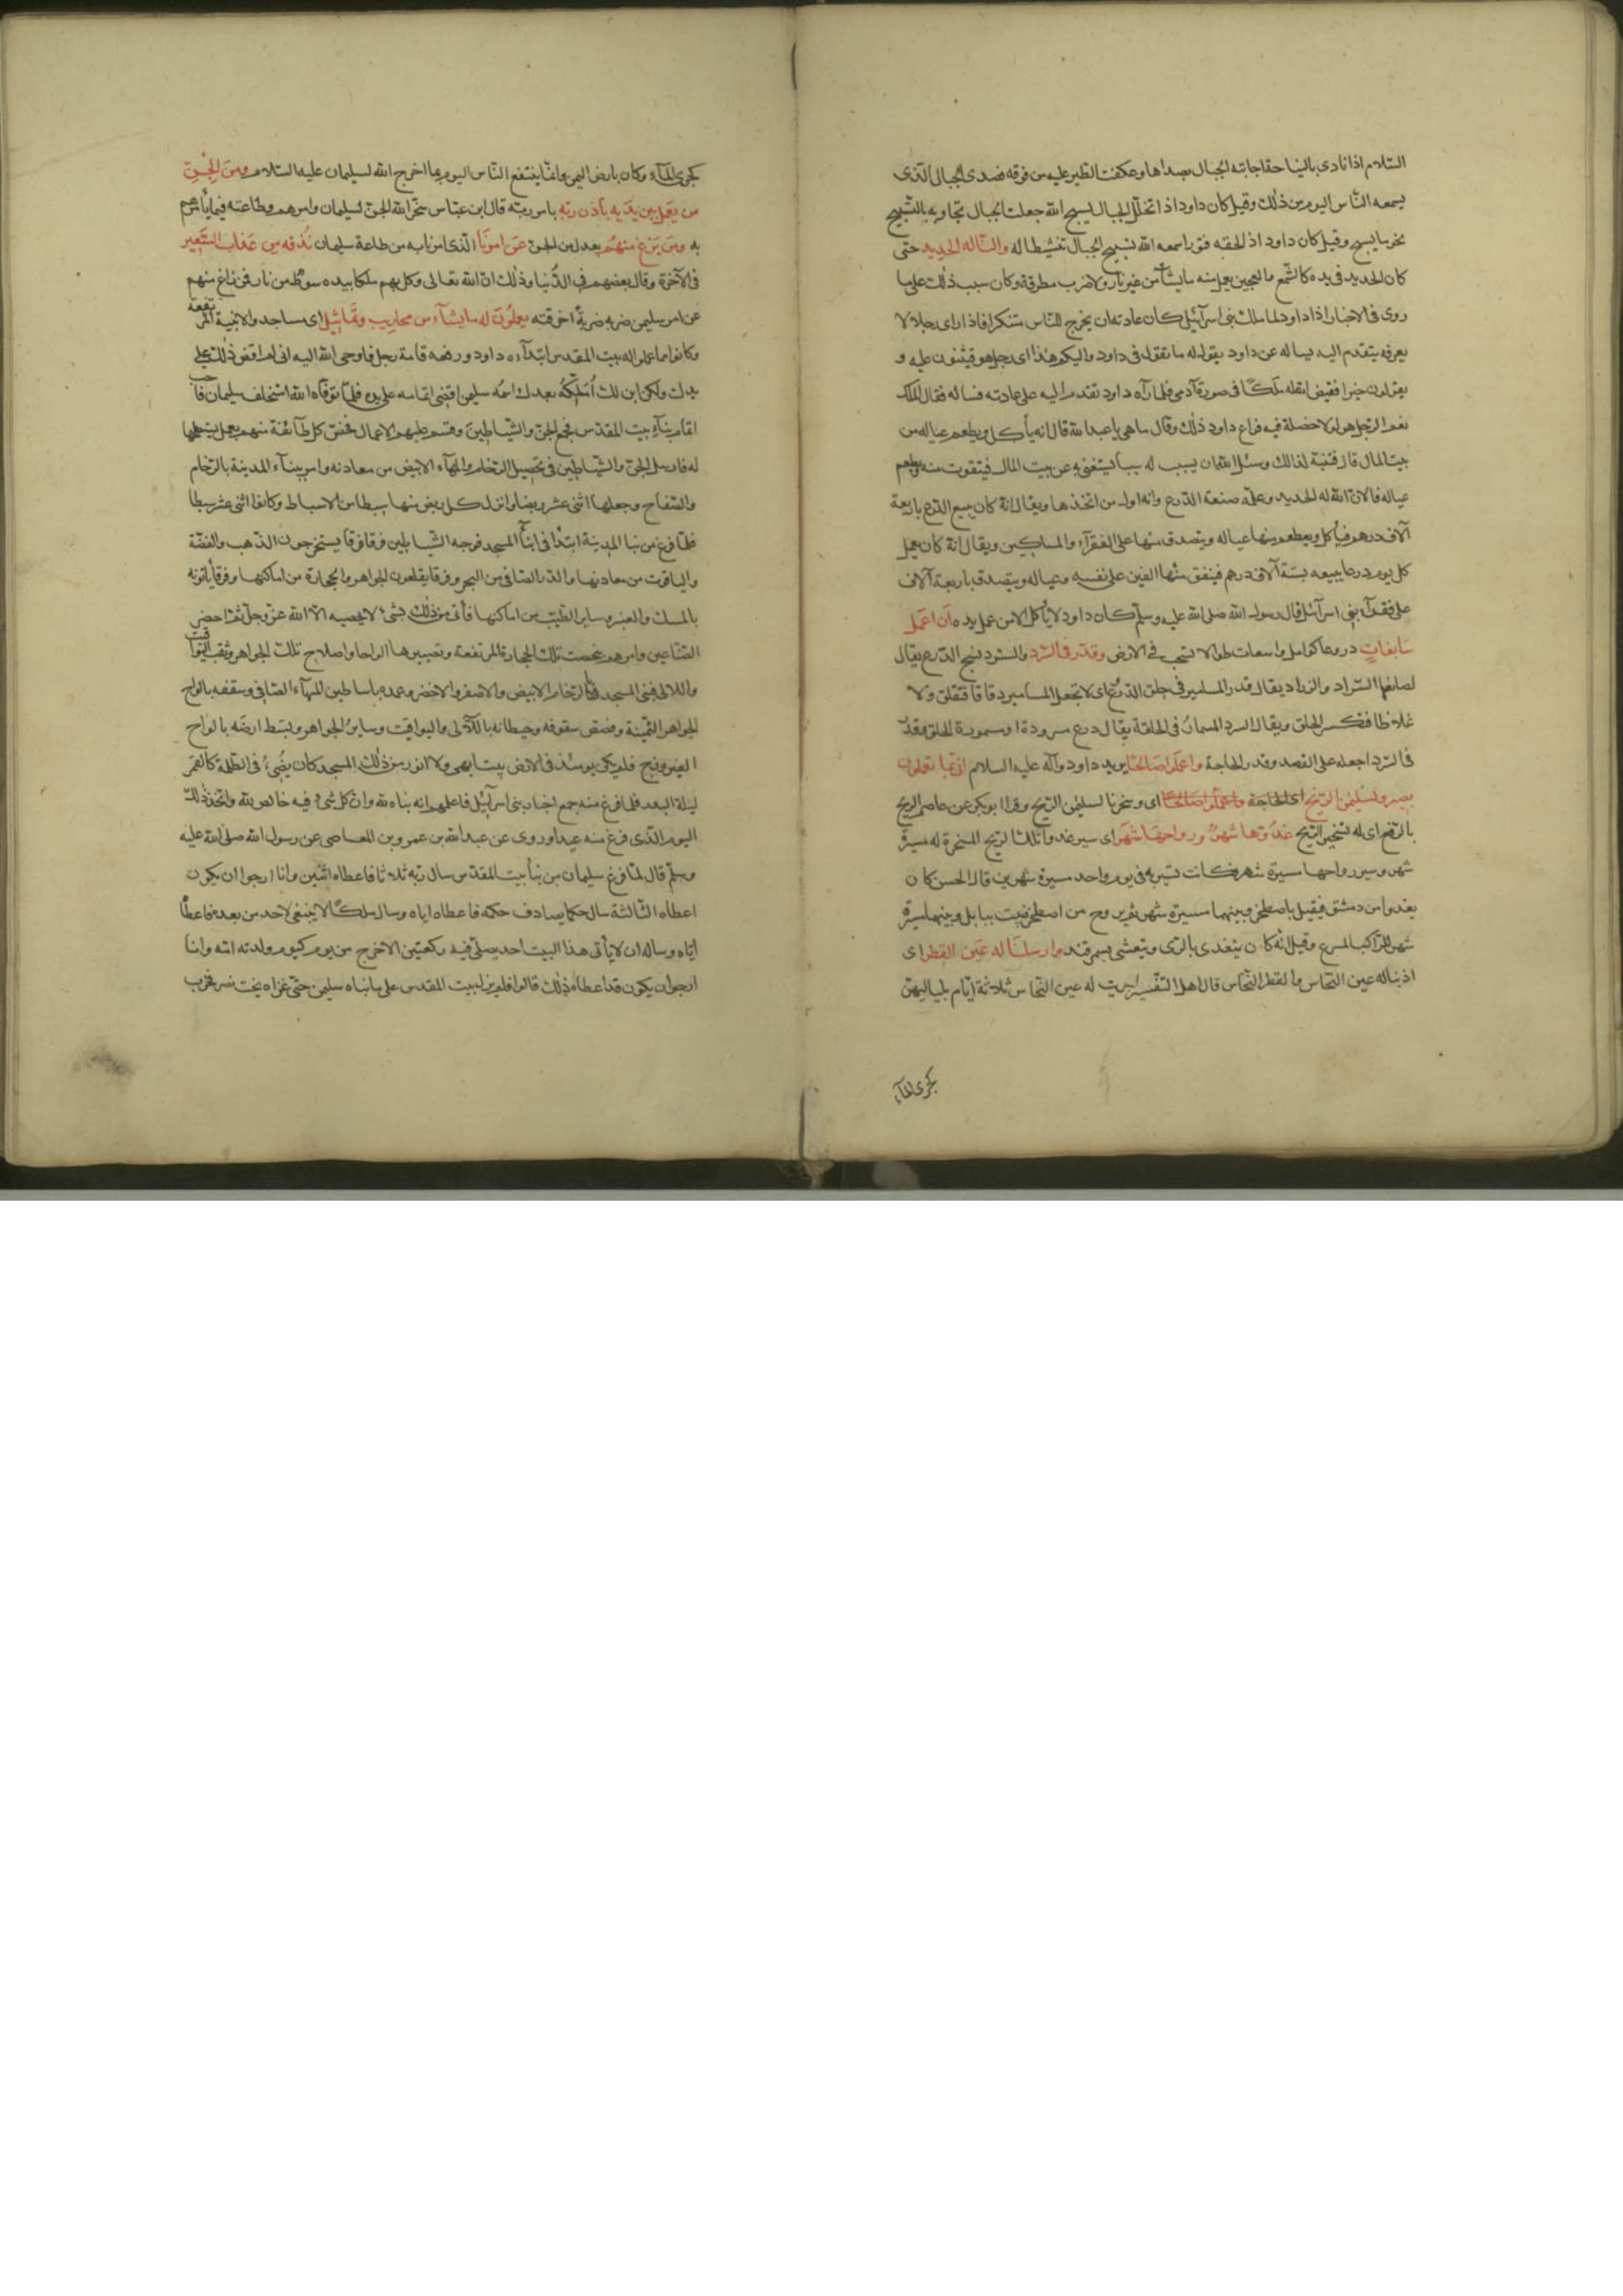 السلام اذا نادى بالنياحة اجابته الجبال بصداها وعكفت الطير عليه من فوقه فصدى الجبال الذى
يسمعه الناس اليوم من ذلك وقيل كان داود اذا تخلل الجبال ليسبح الله جعلت الجبال تجاوبه بالتسبيح
نحو ما يسبح وقيل كان داود اذ لحقه فتور اسمعه الله تسبيح الجبال تنشيطا له والنا له الحديد حتى
كان الحديد فى يده كالشمع والعجين يعمل منه ما يشآ من غير نار ولا ضرب مطرقة وكان سبب ذلك على ما
روى فى الاخبار اذا داود لما ملك بنى اسرآئيل كان عادته ان يخرج للناس متنكرا فاذا راى رجلا لا
يعرفه يتقدم اليه يساله عن داود يقول له ما تقول فى داود واليكم هذا اى رجل هو فيثنون عليه و
يقولون خيرا فقيض الله له ملكا فى صورة آدمى فلما رآه داود تقدم اليه على عادته فساله فقال الملك
نعم الرجل هو لولا خصلة فيه فراع داود ذلك وقال ما هى يا عبد الله قال انه يأكل ويطعم عياله من
بيت المال قال فتنبه لذالك وسئل الله ان يسبب له سببا يستغنى به عن بيت المال فيتقوت منه ويطعم
عياله فالان الله له الحديد وعلمه صنعة الدرع وانه اول من اتخذها ويقال انه كان يبيع الدرع باربعة
آلاف درهم فيأكل ويطعم منها عياله ويتصدق منها على الفقرآء والمساكين ويقال انه كان يعمل
كل يوم درعا يبيعه بستة آلاف درهم فينفق منها الفين على نفسه وعياله ويتصدق باربعة آلاف
على فقرآء بنى اسرآئيل قال رسول الله صلى الله عليه وسلم كان داود لا يأكل الا من عمل يده ان اعمل
سابغات دروعا كوامل واسعات طوالا تسحب فى الارض وقدر فى السرد والسرد نسج الدرع يقال
لصانعها السراد والزراد يقال قدر المسامير فى حلق الدرع اى لا تجعل المسامير دقاقا فتقلق ولا
غلاظا فتكسر الحلق ويقال السرد المسمار فى الحلقة يقال درع مسرودة اى مسمورة الحلق وقدر
فى السرد اجعله على القصد وقدر الحاجة واعملوا صالحا يريد داود وآله عليه السلام انى بما تعلمون
بصير ولسليمن الريح اى الحاجة واعملوا صالحا اى وسخرنا لسليمن الريح وقرا ابو بكر عن عاصم الريح
بالرفع اى له تسخير الريح غدوها شهر ورواحها شهر اى سير غدو تلك الريح المسخرة له مسيرة
شهر وسير رواحها مسيرة شهر فكانت تسير به فى يوم واحد مسيرة شهرين قال الحسن كان
يغدوا من دمشق فيقيل باصطخر وبينهما مسيرة شهر ثم يروح من اصطخر فيبيت ببابل وبينهما مسيرة
شهر للراكب المسرع وقيل انه كان يتغدى بالرى ويتعشى بسمرقند وارسلنا له عين القطر اى
اذبنا له عين النحاس والقطر النحاس قال اهل التفسير اجريت له عين النحاس ثلاثة ايام بلياليهن
كجرى المآء
كجرى المآء وكان بارض اليمن وانما ينتفع الناس اليوم بما اخرج الله لسليمان عليه السلام ومن الجن
من يعمل بين يديه باذن ربه بامر ربه قال ابن عباس سخر الله الجن لسليمان وامرهم بطاعته فيما يأمرهم
به ومن يزغ منهم يعدل من الجن عن امرنا الذى امرنا به من طاعة سليمان نذقه من عذاب السعير
فى الآخرة وقال بعضهم فى الدنيا وذلك ان الله تعالى وكل بهم ملكا بيده سوط من نار فمن زاغ منهم
عن امر سليمن ضربه ضربة احرقته يعملون له ما يشآء من محاريب وتماثيل اى مساجد والابنية المرتفعة
وكانوا مما عملوا له بيت المقدس ابتدآءه داود ورفعه قامة رجل فاوحى الله اليه انى لم اقض ذلك على
يدك ولكن ابن لك املكه بعدك اسمه سليمن اقضى اتمامه على يده فلما توفاه الله استخلف سليمان فاحب
اتمام بنآء بيت المقدس فجمع الجن والشياطين وقسم عليهم الاعمال فخص كل طآئفة منهم بعمل يستصلحها
له فارسل الجن والشياطين فى تحصيل الرخام والمهآء الابيض من معادنه وامر ببنآء المدينة بالرخام
والصفاح وجعلها اثنى عشر ربضا وانزل كل ربض منها سبطا من الاسباط وكانوا اثنى عشر سبطا
فلما فرغ من بنا المدينة ابتدا فى ابنآء المسجد فوجه الشياطين فرقا فرقا يستخرجون الذهب والفضة
والياقوت من معادنها والدر الصافى من البحر وفرقا يقلعون الجواهر والحجارة من اماكنها وفرقا يأتونه
بالمسك والعنبر وساير الطيب من اماكنها فأتى من ذلك بشىء لا يحصيه الا الله عز وجل ثم احضر
الصناعين وامرهم بنحت تلك الحجارة المرتفعة وتصييرها الواحا واصلاح تلك الجواهر وثقب اليواقيت
واللالى فبنى المسجد بالرخام الابيض والاصفر والاخضر وعمده باساطين المهآء الصافى وسقفه بالواح
الجواهر الثمينة وفصص سقوفه وحيطانه باللآلى واليواقيت وساير الجواهر وبسط ارضه بالواح
الفيروزج فلم يكن يومئذ فى الارض بيت ابهى ولا انور من ذلك المسجد كان يضىء فى الظلمة كالقمر
ليلة البدر فلما فرغ منه جمع احبار بنى اسرآئيل فاعلمهم انه بناه لله وان كل شىء فيه خالص لله واتخذ ذلك
اليوم الذى فرغ منه عيدا وروى عن عبد الله بن عمرو بن العاصى عن رسول الله صلى الله عليه
وسلم قال لما فرغ سليمان من بنآء بيت المقدس سال ربه ثلاثا فاعطاه اثنين وانا ارجوا ان يكون
اعطاه الثالثة سال حكما يصادف حكمه فاعطاه اياه وسال ملكا لا ينبغى لاحد من بعده فاعطاه
اياه وساله ان لا يأتى هذا البيت احد يصلى فيه ركعتين الا خرج من يوم كيوم ولدته امه وانا
ارجوا ان يكون قد اعطاه ذلك قالوا فلم يزل بيت المقدس على ما بناه سليمن حتى غزاه بخت نصر فخرب